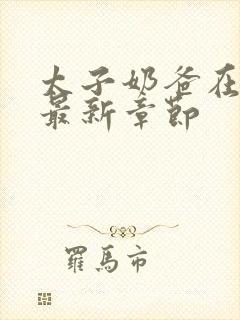 太子奶爸在
最新章节
羅馬市